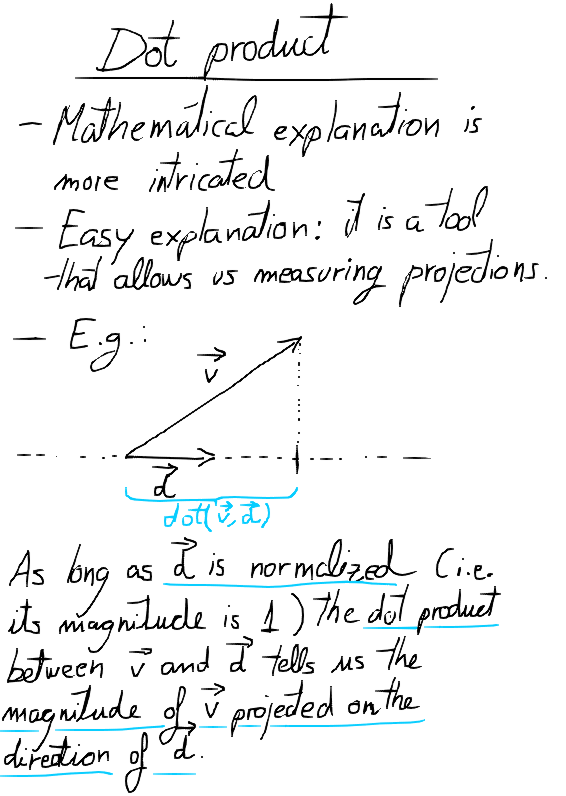 Dot product
- Mathematical explanation is
more intricated
- Easy explanation: it is a tool
that allows us measuring projections.
- E.g.:
v
d
dot(v,d)
As long as d is normalized (i.e.
its magnitude is 1) The dot product
between v and d tells us the
magnitude of v projected on the
direction of d.